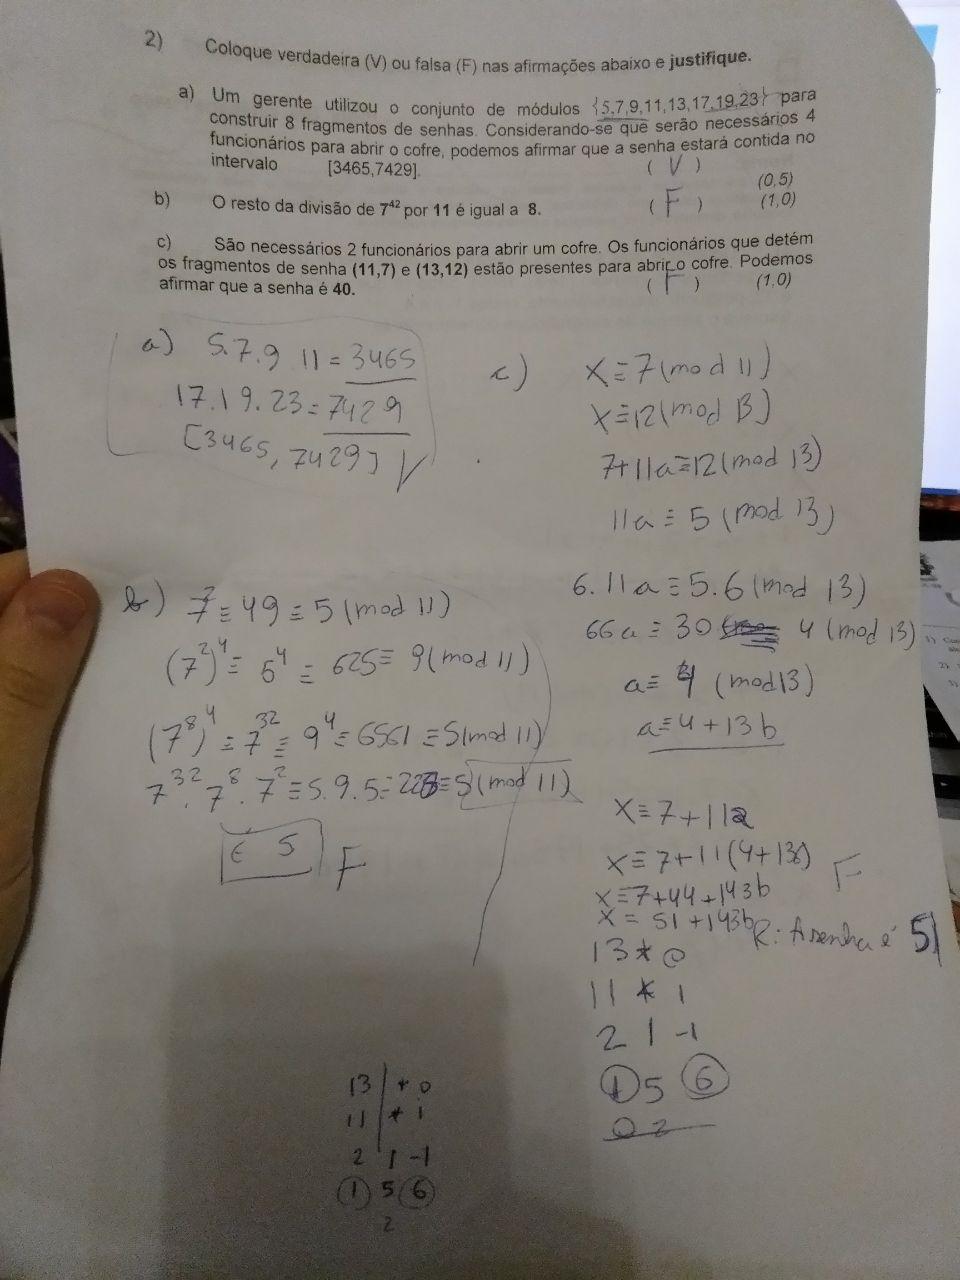 2) Coloque verdadeira (V) ou falsa (F) nas afirmações abaixo e justifique.
a) Um gerente utilizou o conjunto de módulos {5,7,9,11,13,17,19,23} para
construir 8 fragmentos de senhas. Considerando-se que serão necessários 4
funcionários para abrir o cofre, podemos afirmar que a senha estará contida no
intervalo [3465,7429]. ( V )
(0,5)
b) O resto da divisão de 7⁴² por 11 é igual a 8. ( F ) (1,0)
c) São necessários 2 funcionários para abrir um cofre. Os funcionários que detém
os fragmentos de senha (11,7) e (13,12) estão presentes para abrir o cofre. Podemos
afirmar que a senha é 40. ( F ) (1,0)
a) 5.7.9 11 = 3465
17.19.23 = 7429
[3465, 7429] V
b) 7² ≡ 49 ≡ 5 (mod 11)
(7²)⁴ ≡ 5⁴ ≡ 625 ≡ 9 (mod 11)
(7⁸)⁴ ≡ 7³² ≡ 9⁴ ≡ 6561 ≡ 5 (mod 11)
7³² . 7⁸ . 7² ≡ 5.9.5 = 225 ≡ 5 (mod 11)
É 5 F
c) X ≡ 7 (mod 11)
X ≡ 12 (mod 13)
7+11a ≡ 12 (mod 13)
11a ≡ 5 (mod 13)
6.11a ≡ 5.6 (mod 13)
66a ≡ 30 4 (mod 13)
a ≡ 4 (mod 13)
a ≡ 4 + 13b
X ≡ 7 + 11a
X ≡ 7 + 11(4+13b) F
X ≡ 7+44+143b
X = 51 + 143b
R: A senha é 51
13 * 0
11 * 1
2 1 -1
1 5 6
0 2
13 * 0
11 * 1
2 1 -1
1 5 6
2